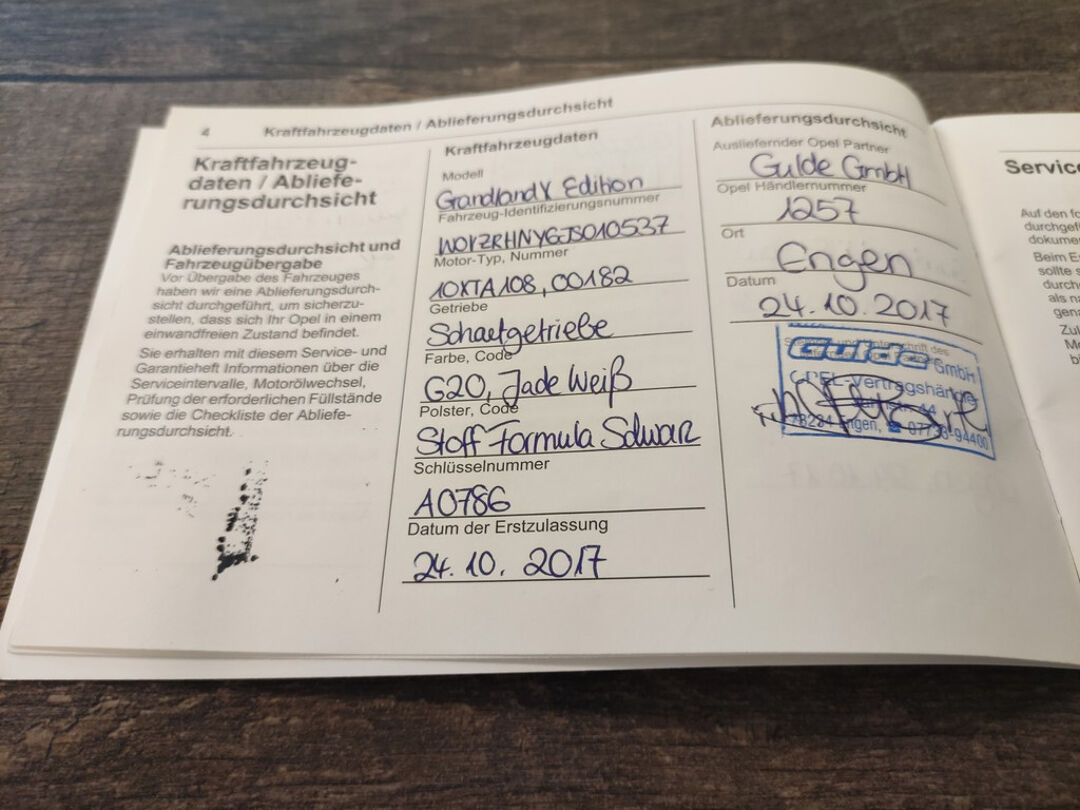 4
Kraftfahrzeugdaten / Ablieferungsdurchsicht
Kraftfahrzeug-
daten / Abliefe-
rungsdurchsicht
Ablieferungsdurchsicht und
Fahrzeugübergabe
Vor Übergabe des Fahrzeuges
haben wir eine Ablieferungsdurch-
sicht durchgeführt, um sicherzu-
stellen, dass sich Ihr Opel in einem
einwandfreien Zustand befindet.
Sie erhalten mit diesem Service- und
Garantieheft Informationen über die
Serviceintervalle, Motorölwechsel,
Prüfung der erforderlichen Füllstände
sowie die Checkliste der Abliefe-
rungsdurchsicht.
Kraftfahrzeugdaten
Modell
Grandland X Edition
Fahrzeug-Identifizierungsnummer
W0VZRHNYGJS010537
Motor-Typ, Nummer
10XTA108, 00182
Getriebe
Schaltgetriebe
Farbe, Code
G20, Jade Weiß
Polster, Code
Stoff Formula Schwarz
Schlüsselnummer
A0786
Datum der Erstzulassung
24. 10. 2017
Ablieferungsdurchsicht
Ausliefernder Opel Partner
Gulde GmbH
Opel Händlernummer
1257
Ort
Engen
Datum
24. 10. 2017
Gulde GmbH
OPEL-Vertragshändler
78234 Engen, ☎ 07733-94400
Service
Auf den fo
durchgef
dokume
Beim E
sollte s
durch
als na
gena
Zu
M
b